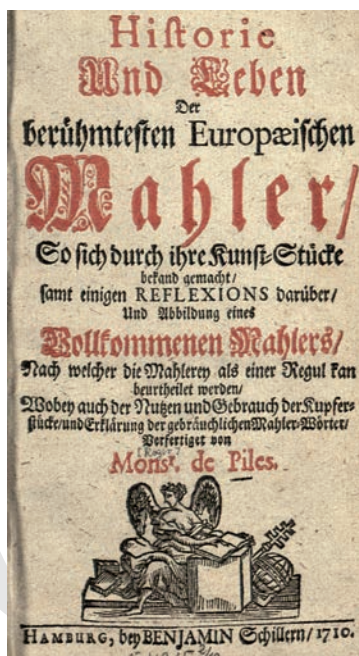 Historie
Und Leben
Der
berühmtesten Europæischen
Mahler/
So sich durch ihre Kunst-Stücke
bekand gemacht/
samt einigen REFLEXIONS darüber/
Und Abbildung eines
Vollkommenen Mahlers/
Nach welcher die Mahlerey als einer Regul kan
beurtheilet werden/
Wobey auch der Nutzen und Gebrauch der Kupfer-
stücke/und Erklärung der gebräuchlichen Mahler-Wörter/
Verfertiget von
[Roger]
Monsr. de Piles.
HAMBURG, bey BENJAMIN Schillern/ 1710.